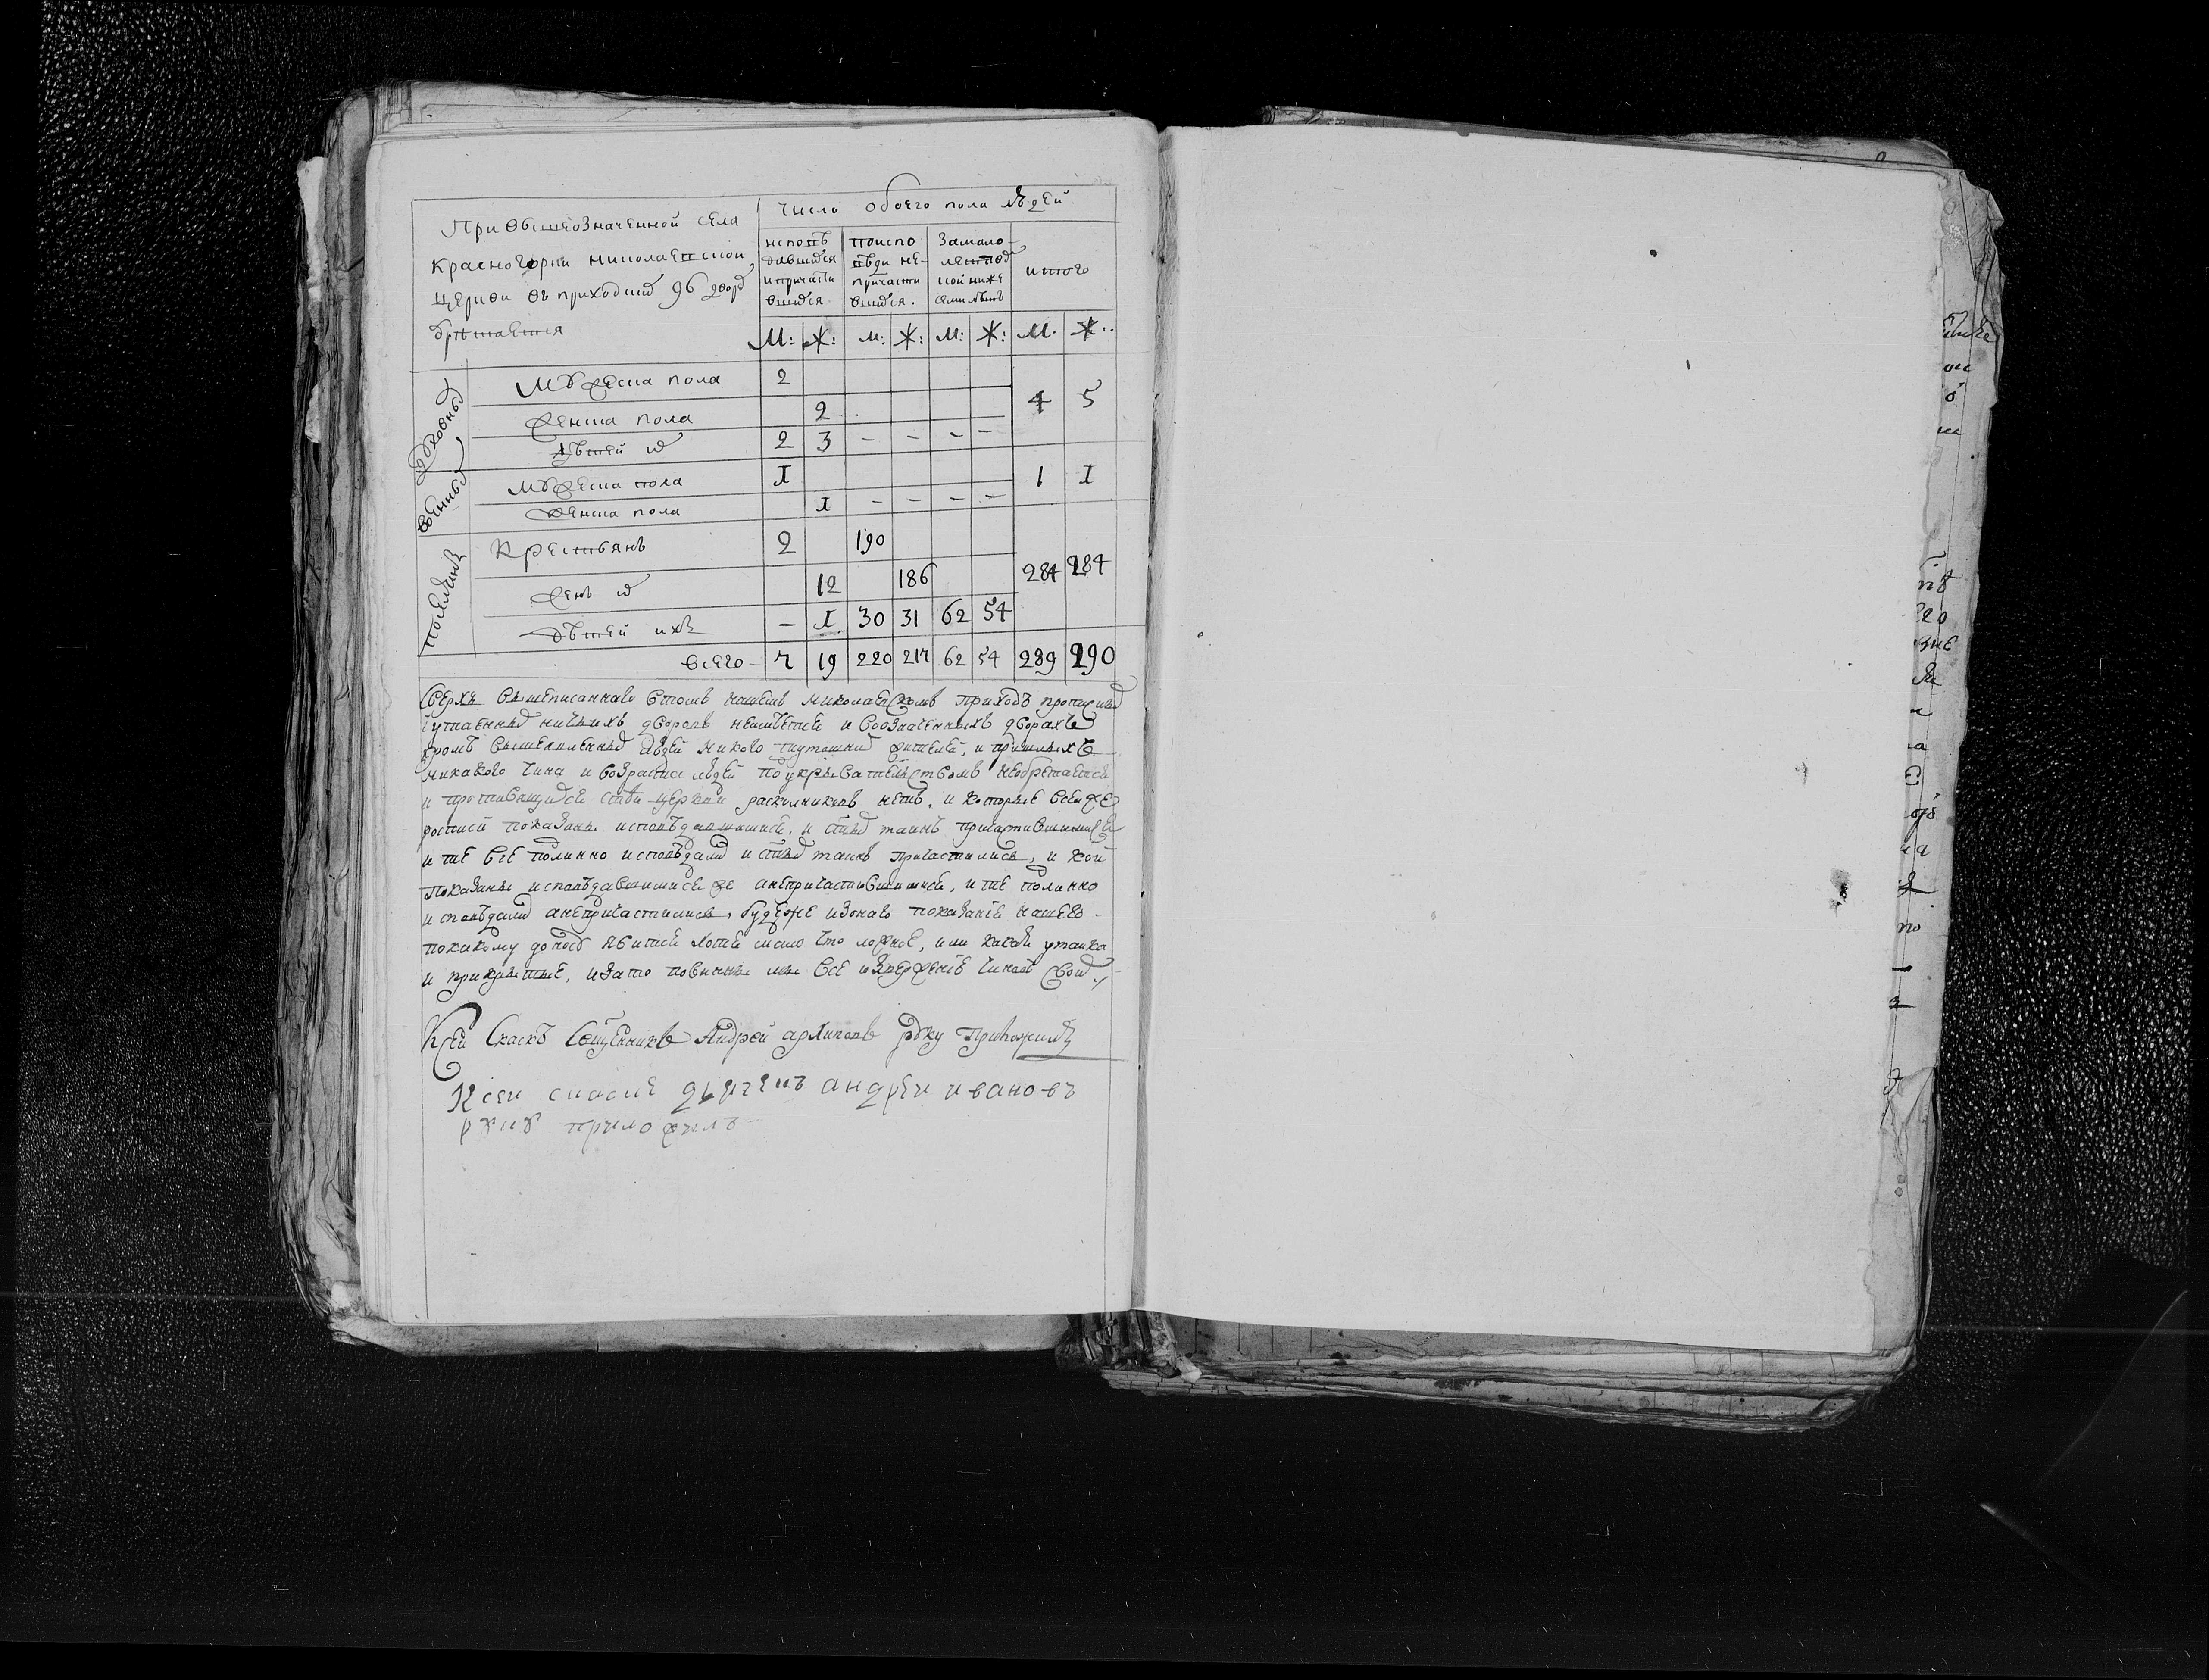 При вышеозначенной села
Красногорки николаевской
церкви въ приходѣ 96 дворѣ
обрѣтается
Число обоего пола людей
исповѣ
давшихся
и причасти
вшихся
по испо
вѣди не
причасти
вшихся.
За мало
лѣтс
ниже
семи лѣтъ
итого
М: Ж: М: Ж: М: Ж: М. Ж..
Духовныхъ
Мужеска пола 2
женска пола 2 4 5
дѣтей их 2 3 – – – –
Военныхъ
Мужеска пола 1 1 1
женска пола 1 – – – –
поселянъ
Крестьянъ 2 190
женъ их 12 186 284 284
дѣтей ихъ – 1 30 31 62 54
всего – 7 19 220 217 62 54 289 290
Сверхъ вышеписаннаго в томъ нашемъ николаевскомъ приходѣ прописных
и утаенных ничьихъ дворовъ неимѣется и в означенныхъ дворахъ
кромѣ вышеявленных людей никого тутошних жителей, и пришлыхъ
никакого чина и возраста людей по укрывательствомъ необретается
и противящихся стѣй церкви раскольниковъ нетъ. и которые в сей же
росписи показаны исповѣдавшимися, и стых таинъ причастившимися
и те все подлинно исповѣдали и стых таинъ причастились, и кои
показаны исповѣдавшимися же а непричастившимися, и те подлинно
исповѣдали а непричастились, буде же изонаго показания нашего
по какому доносу явится хотя мало что ложное, или какая утайка
и прикрытие, и за то повинны мы все извержения чиновъ своих
К сей Сказкѣ Священникъ Андрей архиповъ руку Приложилъ
К сеи скаске дьячекъ андреи ивановъ
руку приложилъ